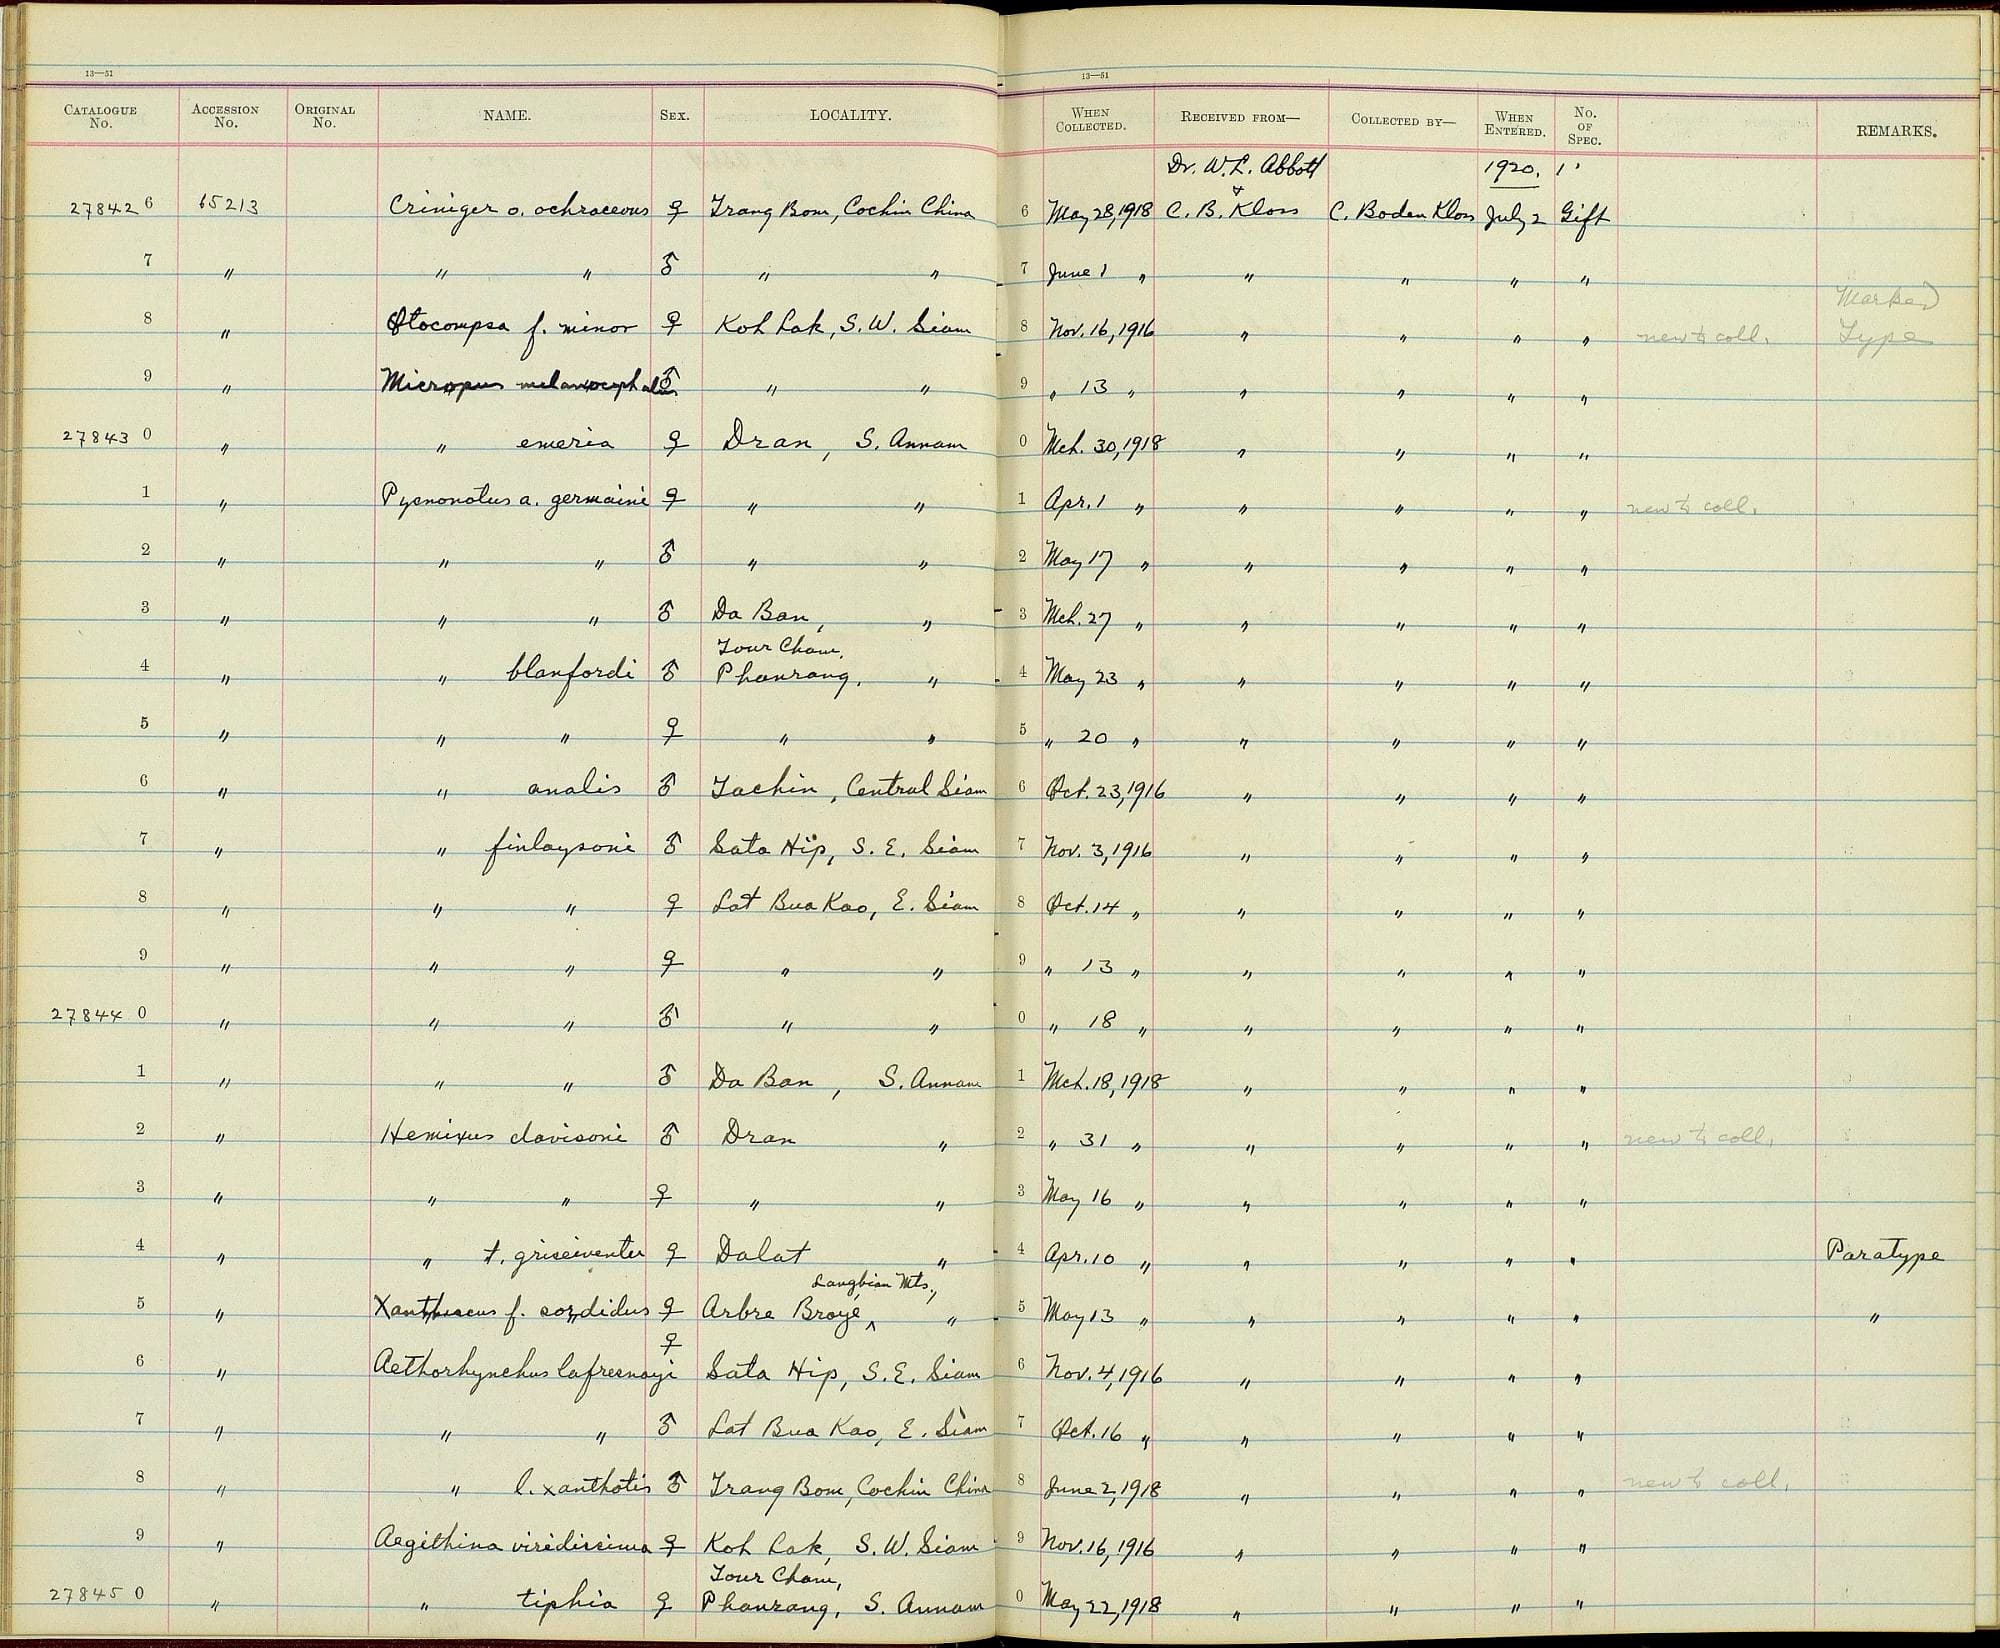 13—51 13—51
CATALOGUE No. ACCESSION No. ORIGINAL No. NAME. SEX. LOCALITY. WHEN COLLECTED. RECEIVED FROM— COLLECTED BY— WHEN ENTERED. No. OF SPEC. REMARKS.
Dr. W. L. Abbott 1920. 1
27842 6 65213 Criniger o. ochraceous ♀ Trang Bom, Cochin China 6 May 28, 1918 & C. B. Kloss C. Boden Kloss July 2 Gift
7 " " " ♂ " " 7 June 1 " " " " "
8 " Otocompsa f. minor ♀ Koh Lak, S. W. Siam 8 Nov. 16, 1916 " " " " new to coll. Marked Type
9 " Micropus melanocephalus ♂ " " 9 " 13 " " " " "
27843 0 " " emeria ♀ Dran, S. Annam 0 Mch. 30, 1918 " " " "
1 " Pycnonotus a. germaini ♀ " " 1 Apr. 1 " " " " " new to coll.
2 " " " ♂ " " 2 May 17 " " " " "
3 " " " ♂ Da Ban, " 3 Mch. 27 " " " " "
Tour Cham,
4 " " blanfordi ♂ Phanrang, " 4 May 23 " " " " "
5 " " " ♀ " " 5 " 20 " " " " "
6 " " analis ♂ Tachin, Central Siam 6 Oct. 23, 1916 " " " "
7 " " finlaysoni ♂ Sata Hip, S. E. Siam 7 Nov. 3, 1916 " " " "
8 " " " ♀ Lat Bua Kao, E. Siam 8 Oct. 14 " " " " "
9 " " " ♀ " " 9 " 13 " " " " "
27844 0 " " " ♂ " " 0 " 18 " " " " "
1 " " " ♂ Da Ban, S. Annam 1 Mch. 18, 1918 " " " "
2 " Hemixus davisoni ♂ Dran " 2 " 31 " " " " " new to coll.
3 " " " ♀ " " 3 May 16 " " " " "
4 " " t. griseiventer ♀ Dalat " 4 Apr. 10 " " " " " Paratype
Langbian Mts.,
5 " Xanthiscus f. sordidus ♀ Arbre Broyé ^ " 5 May 13 " " " " " "
6 " Aethorhynchus lafresnayi ♀ Sata Hip, S. E. Siam 6 Nov. 4, 1916 " " " "
7 " " " ♂ Lat Bua Kao, E. Siam 7 Oct. 16 " " " " "
8 " " l. xanthotis ♂ Trang Bom, Cochin China 8 June 2, 1918 " " " " new to coll.
9 " Aegithina viridissima ♀ Koh Lak, S. W. Siam 9 Nov. 16, 1916 " " " "
Tour Cham,
27845 0 " " tiphia ♀ Phanrang, S. Annam 0 May 22, 1918 " " " "